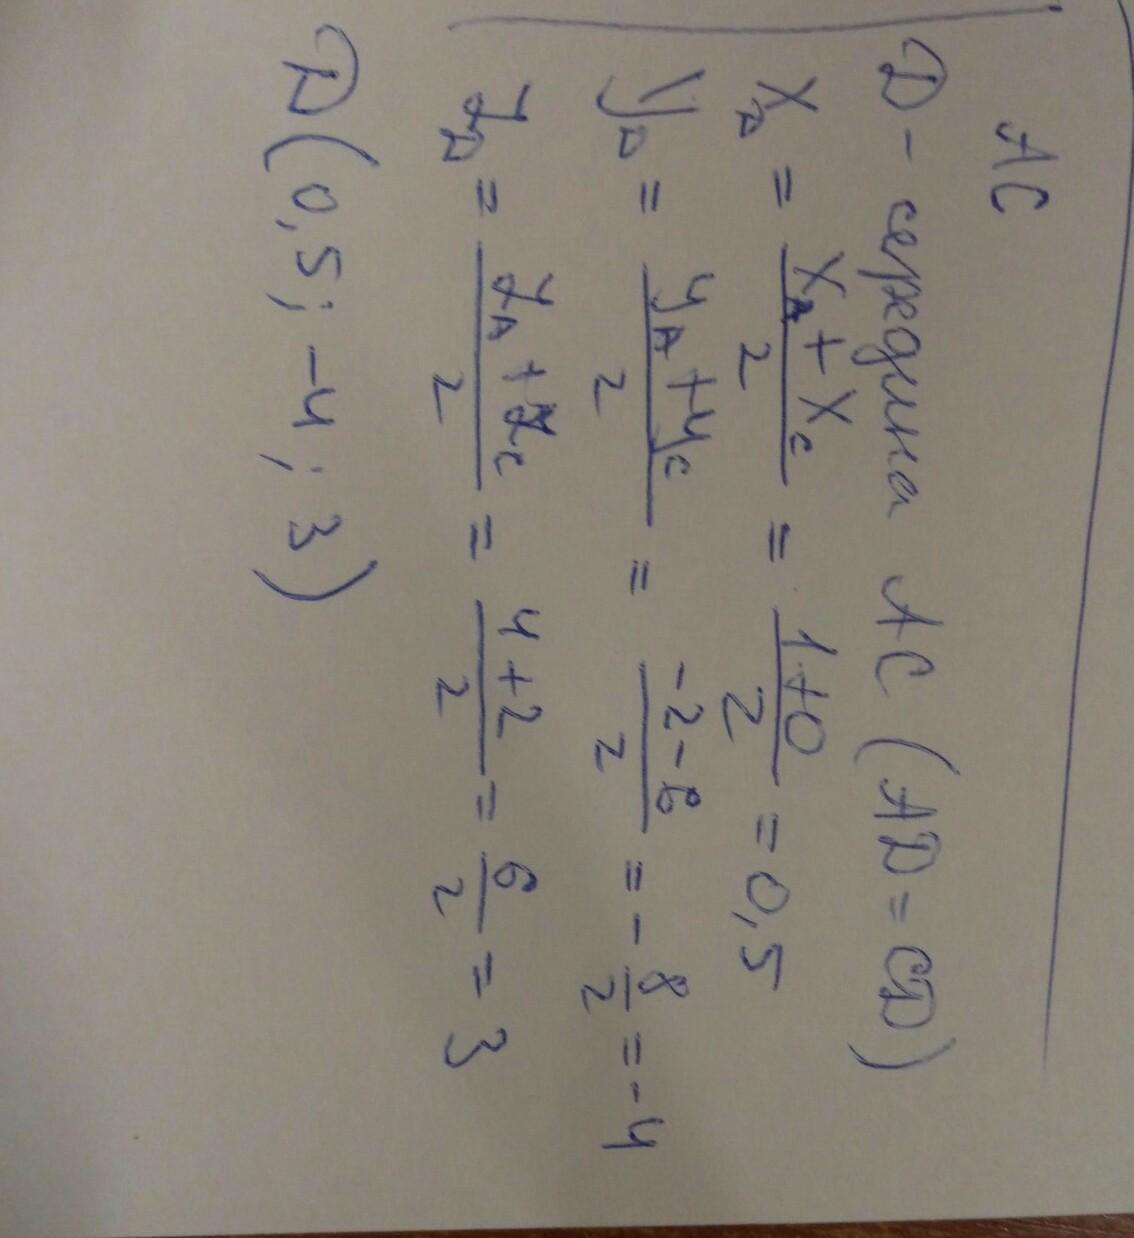 AC
D - середина AC (AD = CD)
x_D = (x_A + x_C)/2 = (1+0)/2 = 0,5
y_D = (y_A + y_C)/2 = (-2-6)/2 = -8/2 = -4
z_D = (z_A + z_C)/2 = (4+2)/2 = 6/2 = 3
D(0,5; -4; 3)